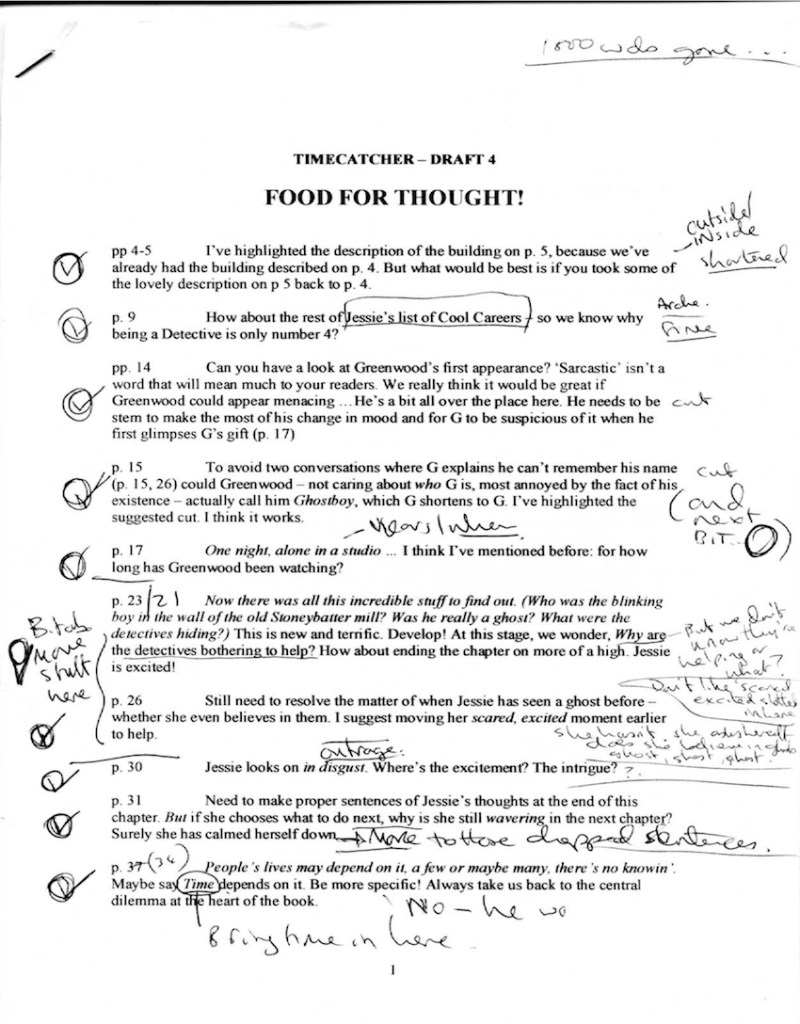 1800 wds gone...
TIMECATCHER – DRAFT 4
FOOD FOR THOUGHT!
outside/
inside
shortened
pp 4-5 I've highlighted the description of the building on p. 5, because we've
already had the building described on p. 4. But what would be best is if you took some of
the lovely description on p 5 back to p. 4.
p. 9 How about the rest of Jessie's list of Cool Careers – so we know why
being a Detective is only number 4?
Arche.
Fine
pp. 14 Can you have a look at Greenwood's first appearance? 'Sarcastic' isn't a
word that will mean much to your readers. We really think it would be great if
Greenwood could appear menacing ... He's a bit all over the place here. He needs to be
stem to make the most of his change in mood and for G to be suspicious of it when he
first glimpses G's gift (p. 17)
cut
p. 15 To avoid two conversations where G explains he can't remember his name
(p. 15, 26) could Greenwood – not caring about who G is, most annoyed by the fact of his
existence – actually call him Ghostboy, which G shortens to G. I've highlighted the
suggested cut. I think it works.
cut
(and
next
BIT...
– Years/when
p. 17 One night, alone in a studio ... I think I've mentioned before: for how
long has Greenwood been watching?
p. 23/21 Now there was all this incredible stuff to find out. (Who was the blinking
boy in the wall of the old Stoneybatter mill? Was he really a ghost? What were the
detectives hiding?) This is new and terrific. Develop! At this stage, we wonder, Why are
the detectives bothering to help? How about ending the chapter on more of a high. Jessie
is excited!
But we don't
know they're
helping or
what?
move
stuff
here
p. 26 Still need to resolve the matter of when Jessie has seen a ghost before –
whether she even believes in them. I suggest moving her scared, excited moment earlier
to help.
Don't like scared
excited
in here
she hasn't, she
does she believe in
ghost, ghost, ghost
outrage.
p. 30 Jessie looks on in disgust. Where's the excitement? The intrigue? ?
p. 31 Need to make proper sentences of Jessie's thoughts at the end of this
chapter. But if she chooses what to do next, why is she still wavering in the next chapter?
Surely she has calmed herself down
→ More to those chopped sentences.
p. 37 (34) People's lives may depend on it, a few or maybe many, there's no knowin'.
Maybe say Time depends on it. Be more specific! Always take us back to the central
dilemma at the heart of the book.
No – he wo
Bring time in here.
1